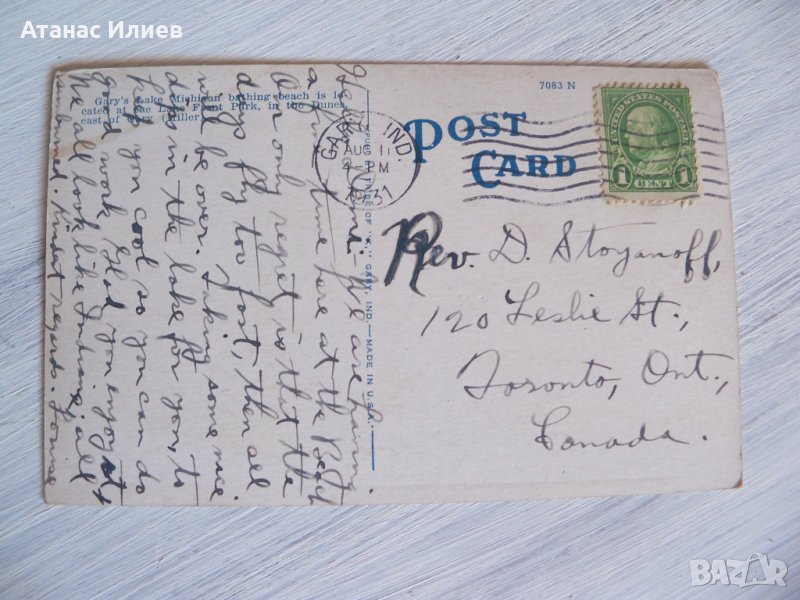 Атанас Илиев
Gary's Lake Michigan bathing beach is lo-
cated at the Lake Front Park, in the Dunes,
east of Gary (Miller)
7083 N
POST
CARD
GARY, IND.
AUG 11
4-PM
1931
UNITED STATES POSTAGE
1 CENT 1
GARY, IND.—MADE IN U.S.A.
Hello Home: We are having
a fine time here at the Beach
Our only regret is that the
days fly too fast, then all
will be over. Taking some nice
dips in the lake for you, to
keep you cool so you can do
good work. Glad you enjoy it.
We all look like Indians; all
sunburned. Kindest regards.
Rev. D. Stoyanoff,
120 Leslie St.,
Toronto, Ont.,
Canada.
BAZAR